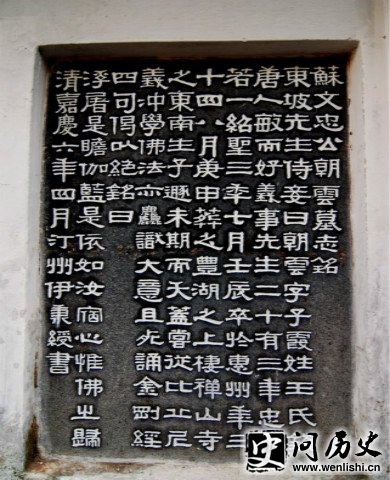 蘇文忠公朝雲墓志銘
東坡先生侍妾曰朝雲字子霞姓王氏
唐人敏而好義事先生二十有三年忠
若一紹聖三年七月壬辰卒於惠州年三
十四八月庚申葬之豐湖之上棲禪山寺
之東南生子遯未期而夭蓋嘗從比丘尼
義沖學佛法亦麤識大意且死誦金剛經
四句偈以絕銘曰
浮屠是瞻伽藍是依如汝宿心惟佛之歸
清嘉慶六年四月汀州伊秉綬書
问历史
www.wenlishi.cn